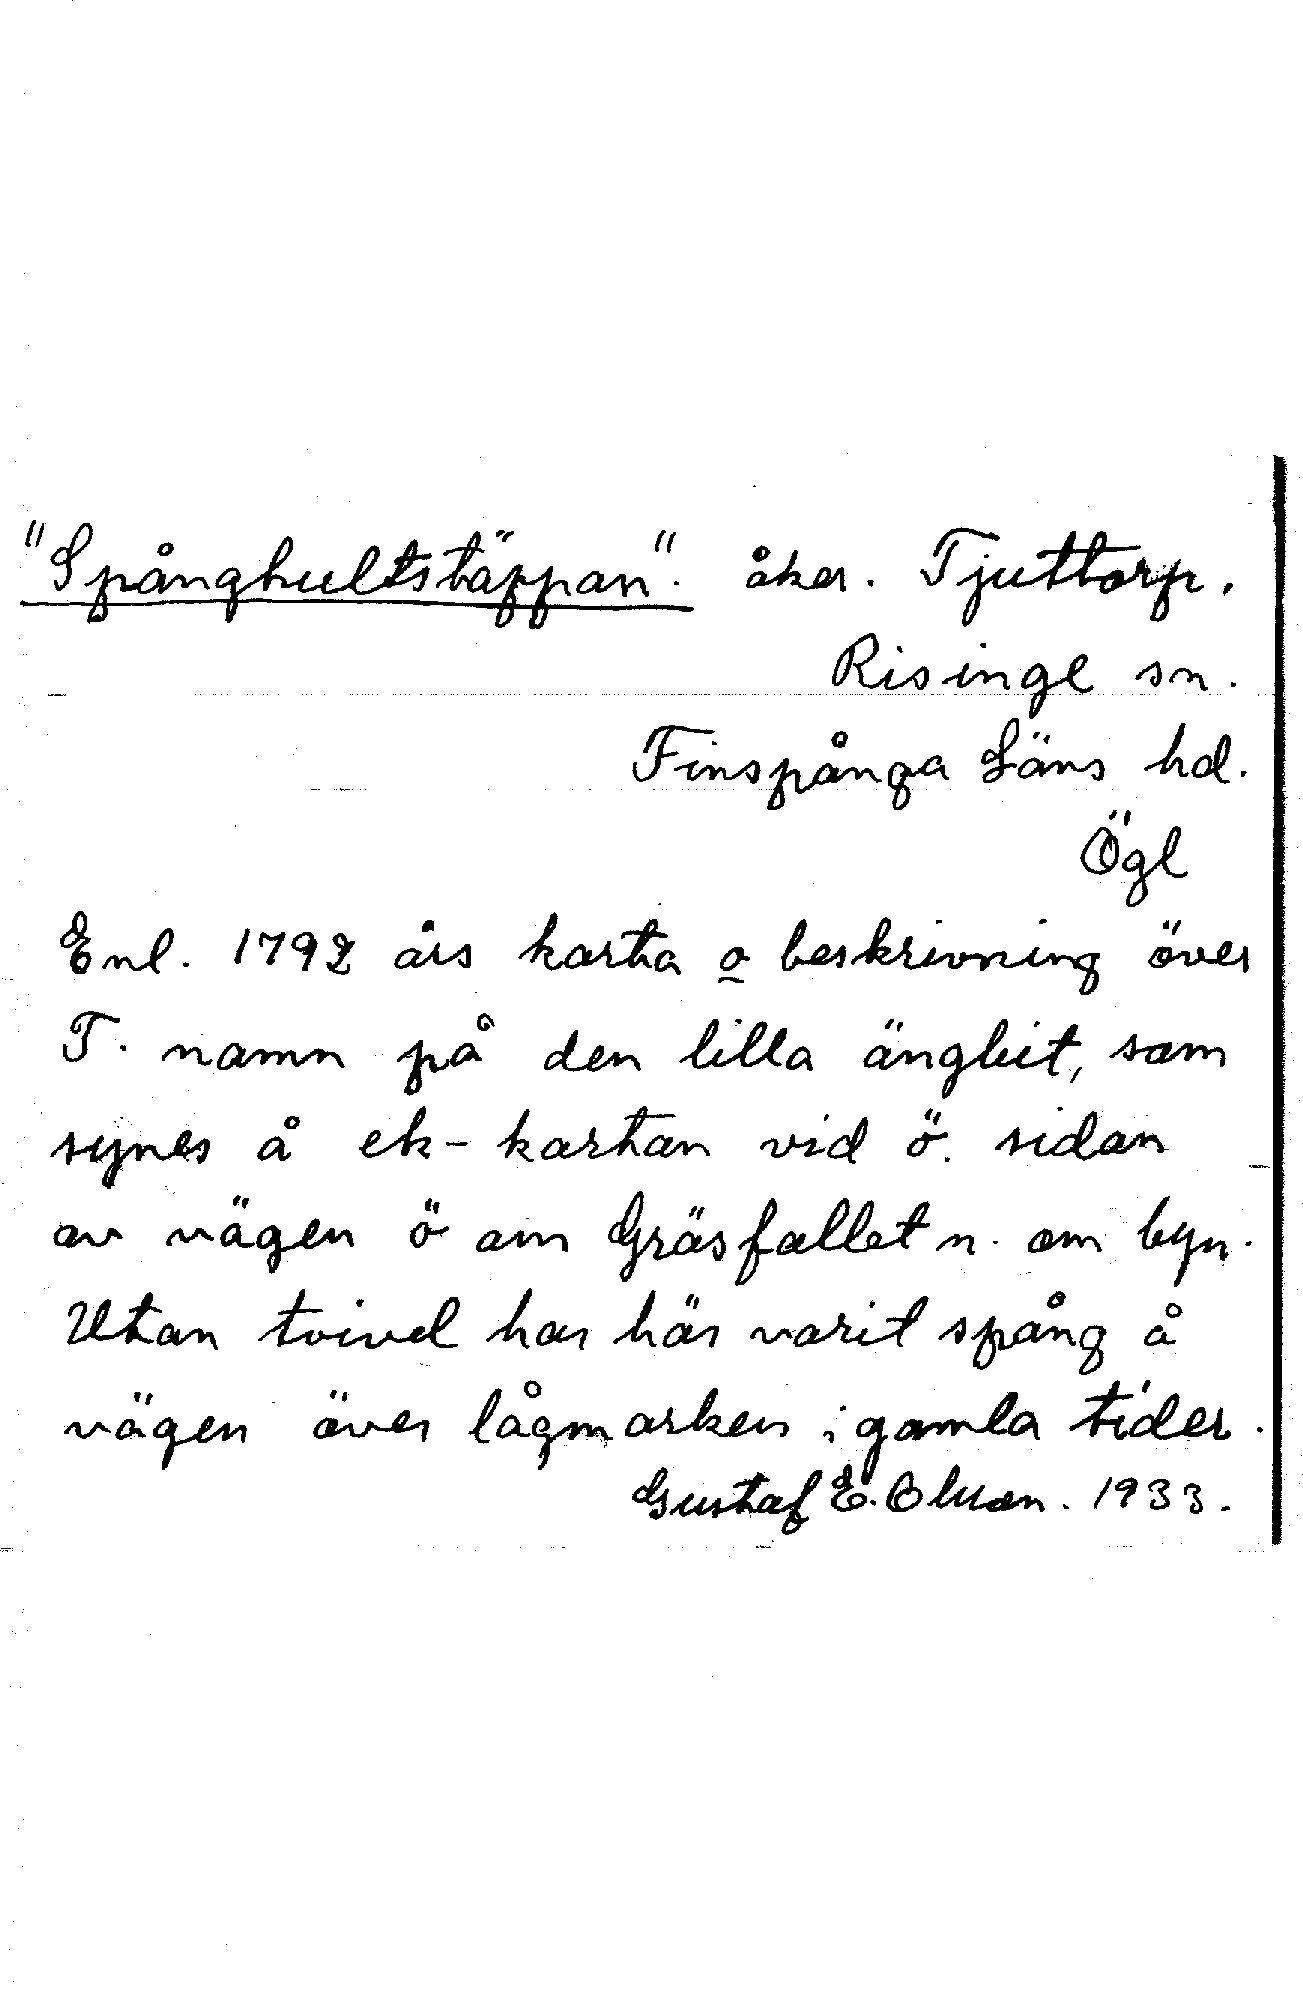 "Spånghultstäppan". åker. Tjuttorp.
Risinge sn.
Finspånga Läns hd.
Ögl
Enl. 1792 års karta o beskrivning över
T. namn på den lilla ängbit, som
synes å ek-kartan vid ö. sidan
av vägen ö om Gräsfallet n. om byn.
Utan tvivel har här varit spång å
vägen över lågmarken i gamla tider.
Gustaf E. Olsson. 1933.